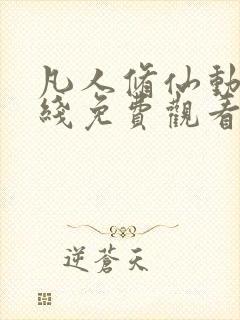 凡人脩仙動
綫免費觀看
逆蒼天